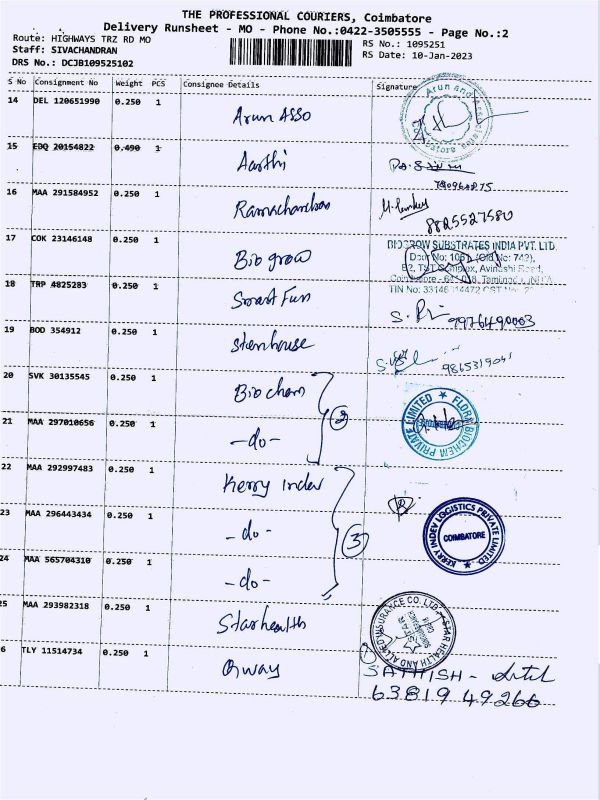 THE PROFESSIONAL COURIERS, Coimbatore
Delivery Runsheet - MO - Phone No.:0422-3505555 - Page No.:2
Route: HIGHWAYS TRZ RD MO
Staff: SIVACHANDRAN
DRS No.: DCJB109525102
RS No.: 1095251
RS Date: 10-Jan-2023
S No Consignment No Weight PCS Consignee Details Signature
14 DEL 120651990 0.250 1 Arun ASSO
Arun and
Coimbatore
15 EDQ 20154822 0.490 1 Aarthi
16 MAA 291584952 0.250 1 Ramachandran
8825527580
17 COK 23146148 0.250 1 Bio grow
BIOGROW SUBSTRATES INDIA PVT. LTD.
18 TRP 4825283 0.250 1 Smart Fun
9976490003
19 BOD 354912 0.250 1 Stenhouse
20 SVK 30135545 0.250 1 Biochem
2
FLORA BIOCHEM PRIVATE LIMITED
21 MAA 297010656 0.250 1 -do-
22 MAA 292997483 0.250 1 Kerry Indev
3
KERRY INDEV LOGISTICS PRIVATE LIMITED
COIMBATORE
23 MAA 296443434 0.250 1 -do-
24 MAA 565704310 0.250 1 -do-
25 MAA 293982318 0.250 1 Starhealth
STAR HEALTH AND ALLIED INSURANCE CO. LTD.
26 TLY 11514734 0.250 1 Qway
SATHISH -
63819 49266